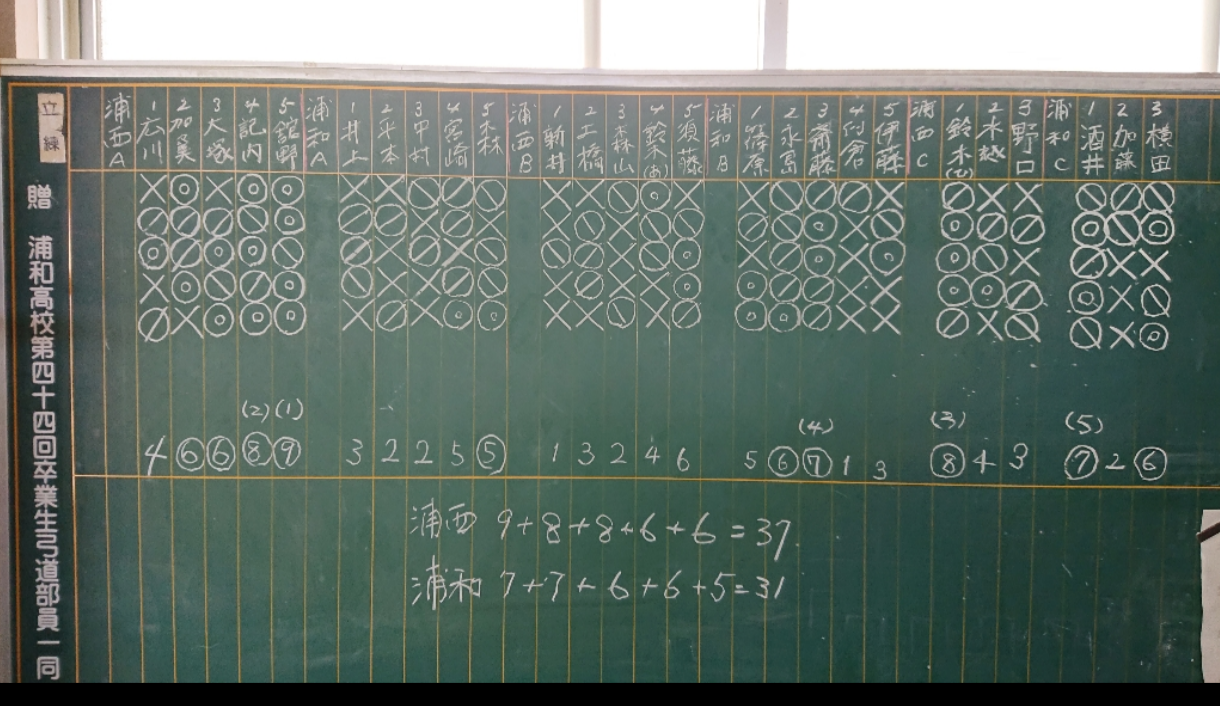 立練
贈 浦和高校第四十四回卒業生弓道部員一同
浦西A
1 広川
2 加美
3 大塚
4 記内
5 舘野
浦和A
1 井上
2 平本
3 中村
4 宮崎
5 森
浦西B
1 新井
2 土橋
3 森山
4 鈴木(あ)
5 須藤
浦和B
1 篠原
2 永島
3 齋藤
4
5 伊藤
浦西C
1 鈴木(ひ)
2 木越
3 野口
浦和C
1 酒井
2 加藤
3 横田
(2) (1) (4) (3) (5)
4 ⑥ ⑥ ⑧ ⑨ 3 2 2 5 ⑤ 1 3 2 4 6 5 ⑥ ⑦ 1 3 ⑧ 4 3 ⑦ 2 ⑥
浦西 9+8+8+6+6=37.
浦和 7+7+6+6+5=31